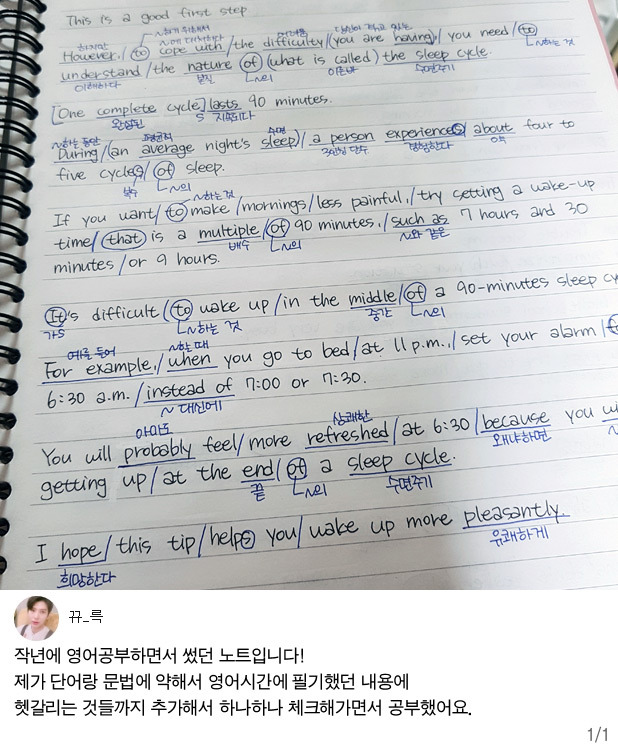 This is a good first step
~하기 위해서
하지만 ~에 대처하다 어려움 당신이 가지고 있는
However, / to cope with / the difficulty / (you are having), / you need / to
~하는 것
understand / the nature of (what is called) the sleep cycle.
이해하다 본질 ~의 이른바 수면주기
[One complete cycle] lasts 90 minutes.
완성된 S 지속되다
~하는 동안 평균적 수면
During / (an average night's sleep) / a person experiences / about four to
3인칭 단수 경험한다 약
five cycles / of sleep.
복수 ~의
~하는 것
If you want / to make / mornings / less painful, / try setting a wake-up
time / that is a multiple / of 90 minutes, / such as 7 hours and 30
배수 ~의 ~와 같은
minutes / or 9 hours.
It's difficult / to wake up / in the middle / of a 90-minutes sleep cy
가S ~하는 것 중간 ~의
예를 들어 ~할 때
For example, / when you go to bed / at 11 p.m., / set your alarm /
6:30 a.m. / instead of 7:00 or 7:30.
~ 대신에
아마도 상쾌한
You will probably feel / more refreshed / at 6:30 / because you wi
왜냐하면
getting up / at the end / of a sleep cycle.
끝 ~의 수면주기
I hope / this tip / helps you / wake up more pleasantly.
희망한다 유쾌하게
뀨_륵
작년에 영어공부하면서 썼던 노트입니다!
제가 단어랑 문법에 약해서 영어시간에 필기했던 내용에
헷갈리는 것들까지 추가해서 하나하나 체크해가면서 공부했어요.
1/1